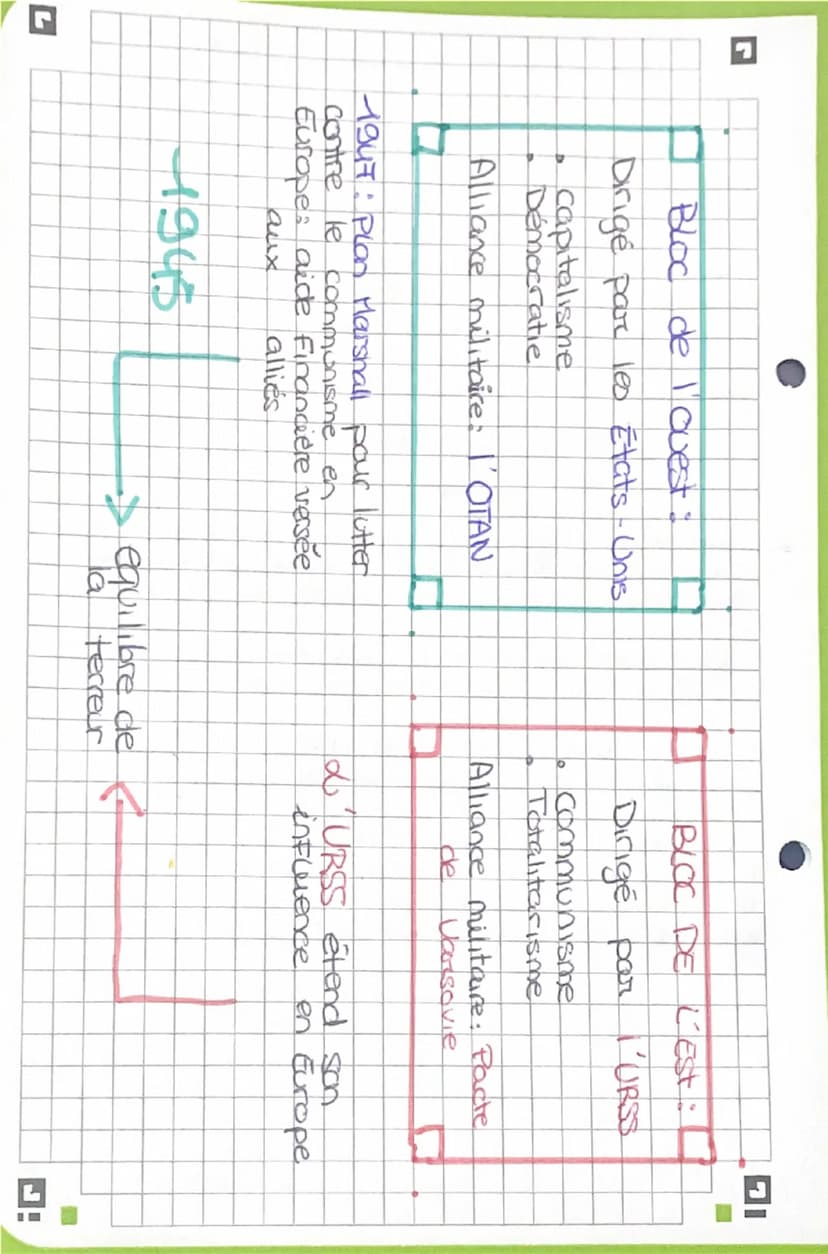 Bloc de l'ouest:
Dirigé par les États-Unis
• Capitalisme
• Démocratie
Alliance militaire: l'OTAN
BLOC DE L'EST:
Dirigé par l'URSS
• Communisme
• Totalitarisme
Alliance militaire: Pacte
de Varsovie
1947: Plan Marshall pour lutter
contre le communisme en
Europe: aide financière versée
aux alliés
L'URSS étend son
influence en Europe
1945
equilibre de
la terreur